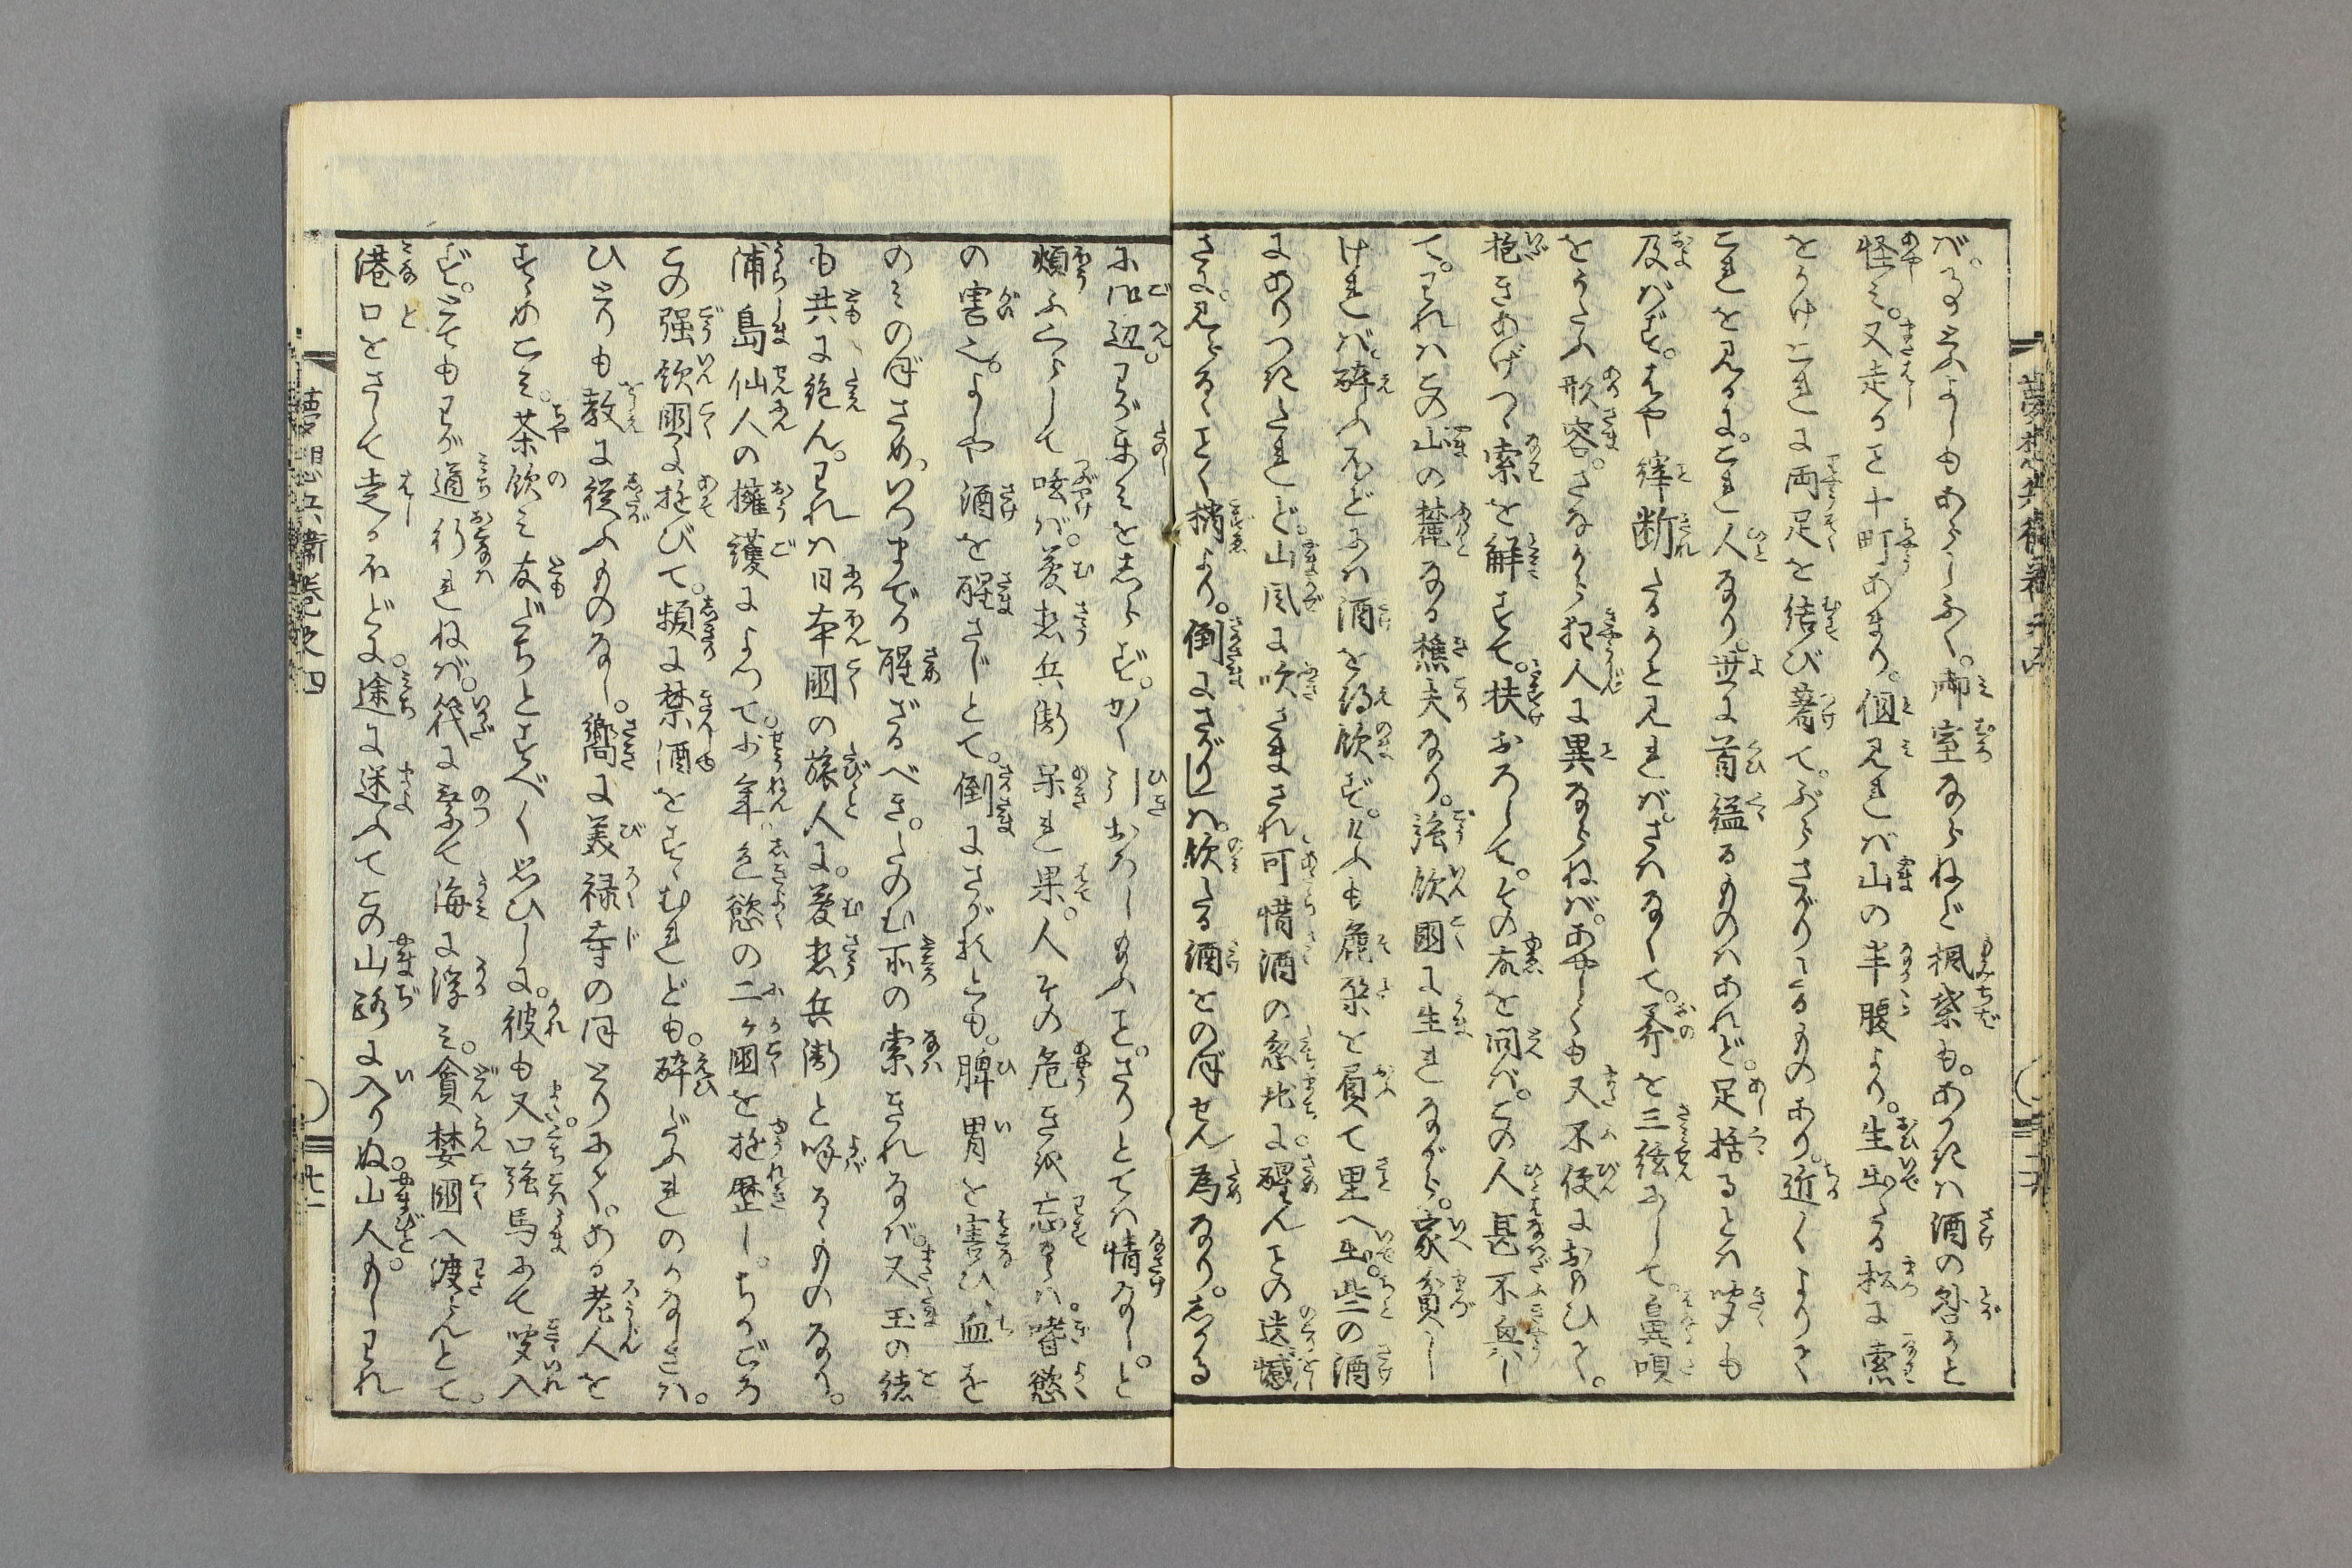 ば。る云よしもあらふく。御室ならねど楓葉も。あかきは酒の咎かと
怪み。又走ること十町あまり。個見れば山の半腹より。生出たる松に索
をかけこれに両足を結び着て。ぶらさがりたるものあり。近くよりて
これを見るに。これ人なり。世に首縊るものはあれど。足括るとは聞も
及ばず。はや縡断たるかと見れば。さはなくて。斧を三弦にして。鼻唄
をうたふ形容。さながら狂人に異ならねば。あやしくも又不便におもひて。
抱きあげつゝ索を解すて。扶おろして。その故を問へば。この人甚不興し
て。われはこの山の麓なる樵夫なり。強飲国に生れながら。家貧し
ければ。酔ふほどには酒を得飲ず。けふも麁朶を負て里へ出。些の酒
にありつきたれど。山風に吹さまされ可惜酒の忽地に醒んことの遺憾
さに。見らるゝごとく梢より。倒にさがりしは。飲たる酒をのぼせん為なり。しかる
に御辺。わが楽みをしらず。かく引おろし給ふこと。さりとては情なし。と
頬ふくらして呟ば。夢想兵衛呆れ果。人その危きを忘るゝは。嗜慾
の害也。よしや酒を醒さじとて。倒にさがるとも。脾胃を害ひ。血を
のみのぼさめ。いつまでか醒ざるべき。たのむ所の索きれなば。又玉の緒
も共に絶ん。われは日本国の旅人に。夢想兵衛と呼るゝものなり。
浦島仙人の擁護によつて。少年。色慾の二ヶ国を遊歴し。ちかごろ
この強飲国に遊びて。頻に禁酒をすゝむれども。酔ざふれのかなしさは。
ひとりも教に従ふものなし。嚮に美禄寺のほとりにて。ある老人を
すゝめこみ。茶飲み友だちとすべく思ひしに。彼も又口強馬にて聞入
ず。とてもわが道行れねば。筏に乗て海に浮み。貪婪国へ渡らんとて。
港口をさして走るほどに。途に迷ふてこの山路に入りぬ。山人もしわれ
夢想兵衛巻之四